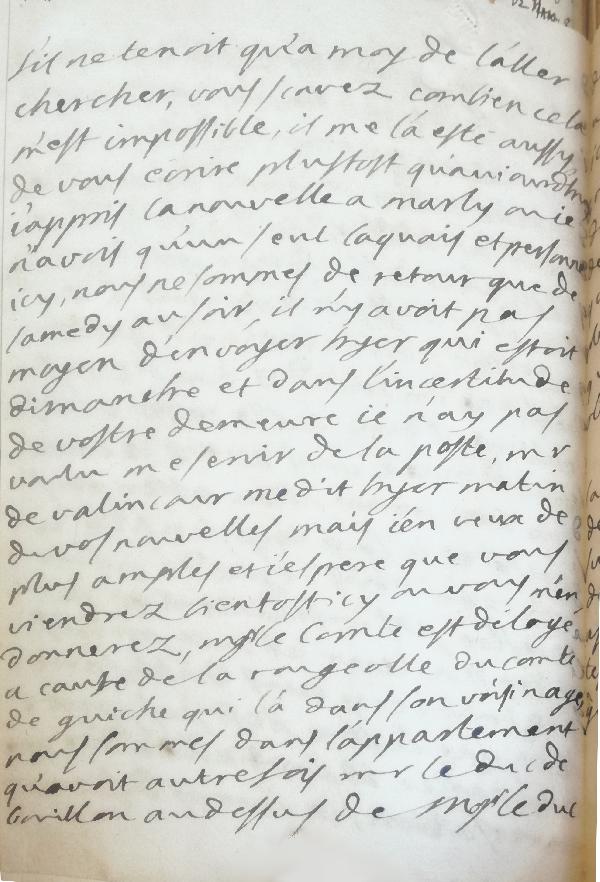 s'il ne tenoit qu'a moy de l'aller
chercher, vous scavez combien cela
m'est impossible, il me l'a esté aussy
de vous écrire plustost qu'aujourdhuy
i'appris la nouvelle a marly ou ie
n'avois qu'un seul laquais et personne
icy, nous ne sommes de retour que de
samedy au soir, il n'y avoit pas
moyen d'envoyer hyer qui estoit
dimanche et dans l'incertitude
de vostre demeure ie n'ay pas
voulu me servir de la poste, mr
de valincour me dit hyer matin
de vos nouvelles mais i'en veux de
plus amples et i'espere que vous
viendrez bientost icy ou vous m'en
donnerez, mgr le Comte est délogé
a cause de la rougeolle du comte
de guiche qui l'a dans son voisinage,
nous sommes dans l'appartement
qu'avoit autrefois mr le duc de
au dessus de Mgr le duc